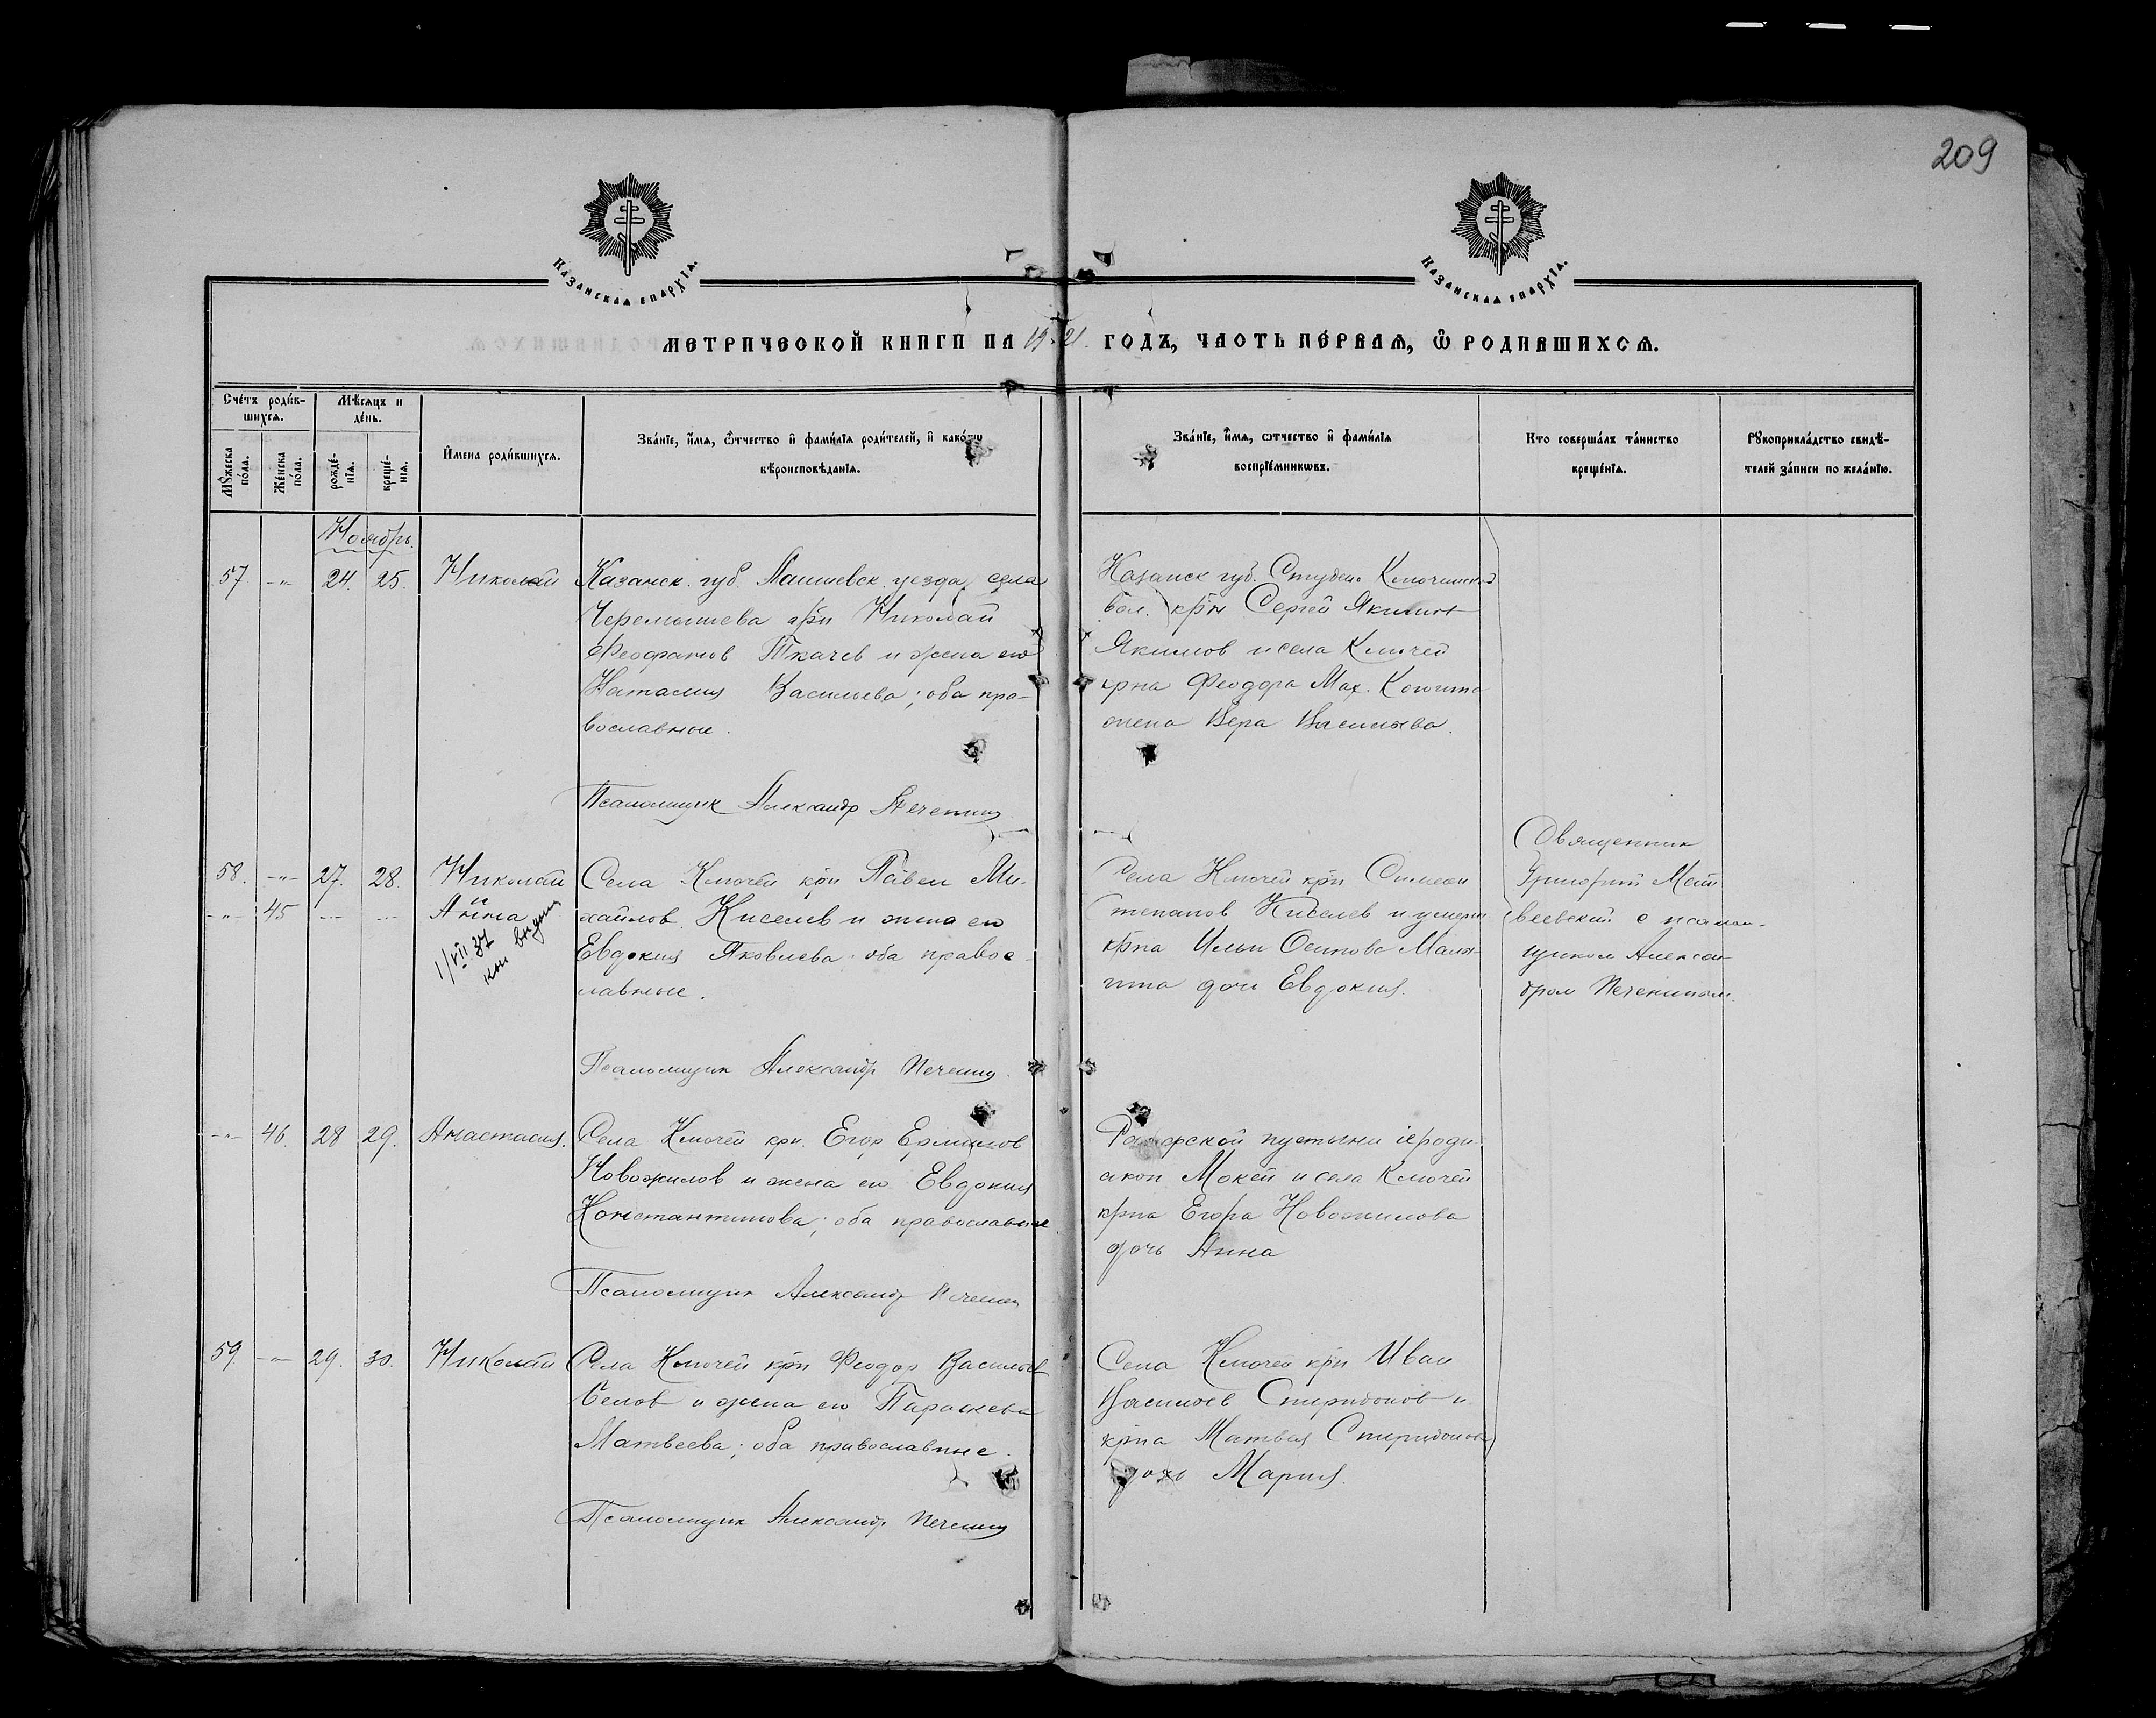 209
Казанская епархїа.
Казанская епархїа.
Метрической книги на 1921 годъ, часть первая, ѿ родившихся.
Счетъ родив-
шихся.
Мужеска
пола.
Женска
пола.
Мѣсяцъ и
день.
рожде-
нїя.
креще-
нїя.
Имена родившихся.
Званїе, имя, отчество и фамилїя родителей, и какогѡ
вѣроисповѣданїя.
Званїе, имя, отчество и фамилїя
воспрїемникѡвъ.
Кто совершалъ таинство
крещенїя.
Рукоприкладство свидѣ-
телей записи по желанїю.
Ноябрь.
57 -"- 24. 25. Николай
Казанск. губ. Лаишевск. уезда, села
Черемышева крн Николай
Феофанов Ткачев и жена его
Наталия Васильева; оба пра-
вославные.
Псаломщик Александр Печенин
Казанск губ. Студен. Ключинской
вол. крн Сергей Якимов
Якимов и села Ключей
крна Феодора Мах.
жена Вера Васильева.
58. -"- 27. 28. Николай
-"- 45 и Анна
1/VII 37
коп выдана
Села Ключей крн Павел Ми-
хайлов Киселев и жена его
Евдокия Яковлева оба правос-
лавные.
Псаломщик Александр Печенин
Села Ключей крн Симеон
Степанов Киселев и умерш.
крна Ильи Осипова
дочь Евдокия.
Священник
Григорий
с псалом-
щиком Алексан-
дром Печениным.
-"- 46. 28 29. Анастасия.
Села Ключей крн. Егор Ермилов
Новожилов и жена его Евдокия
Константинова; оба православные
Псаломщик Александр Печенин
Раифской пустыни іероди-
акон Мокей и села Ключей
крна Егора Новожилова
дочь Анна
59 -"- 29. 30. Николай
Села Ключей крн Феодор Васильев
и жена его Параскева
Матвеева; оба православные.
Псаломщик Александр Печенин
Села Ключей крн Иван
Васильев Спиридонов и
крна Матвея Спиридонова
дочь Мария.